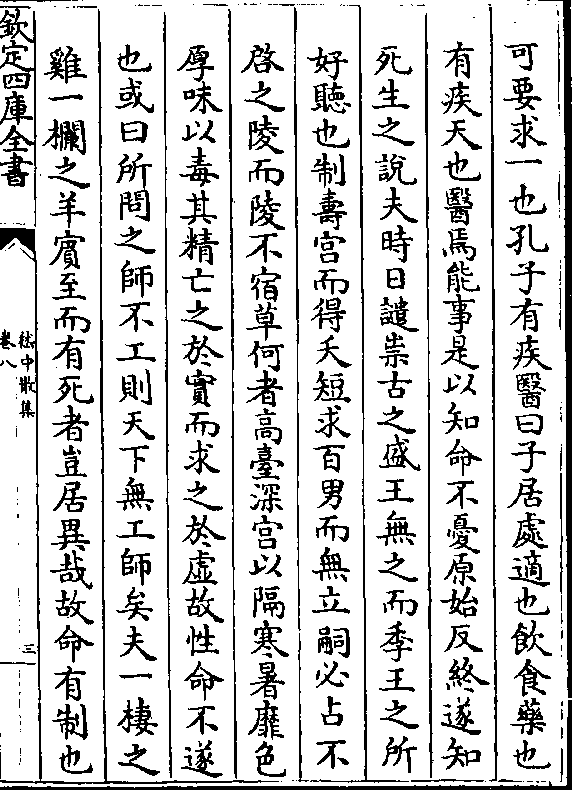 可要求一也孔子有疾醫曰子居處適也飲食藥也
有疾天也醫焉能事是以知命不憂原始反終遂知
死生之說夫時日譴祟古之盛王無之而季王之所
好聽也制壽宮而得夭短求百男而無立嗣必占不
啓之陵而陵不宿草何者高臺深宮以隔寒暑靡色
厚味以毒其精亡之於實而求之於虛故性命不遂
也或曰所問之師不工則天下無工師矣夫一棲之
雞一欄之羊賓至而有死者豈居異哉故命有制也
欽定四庫全書
嵇中散集
卷八
三